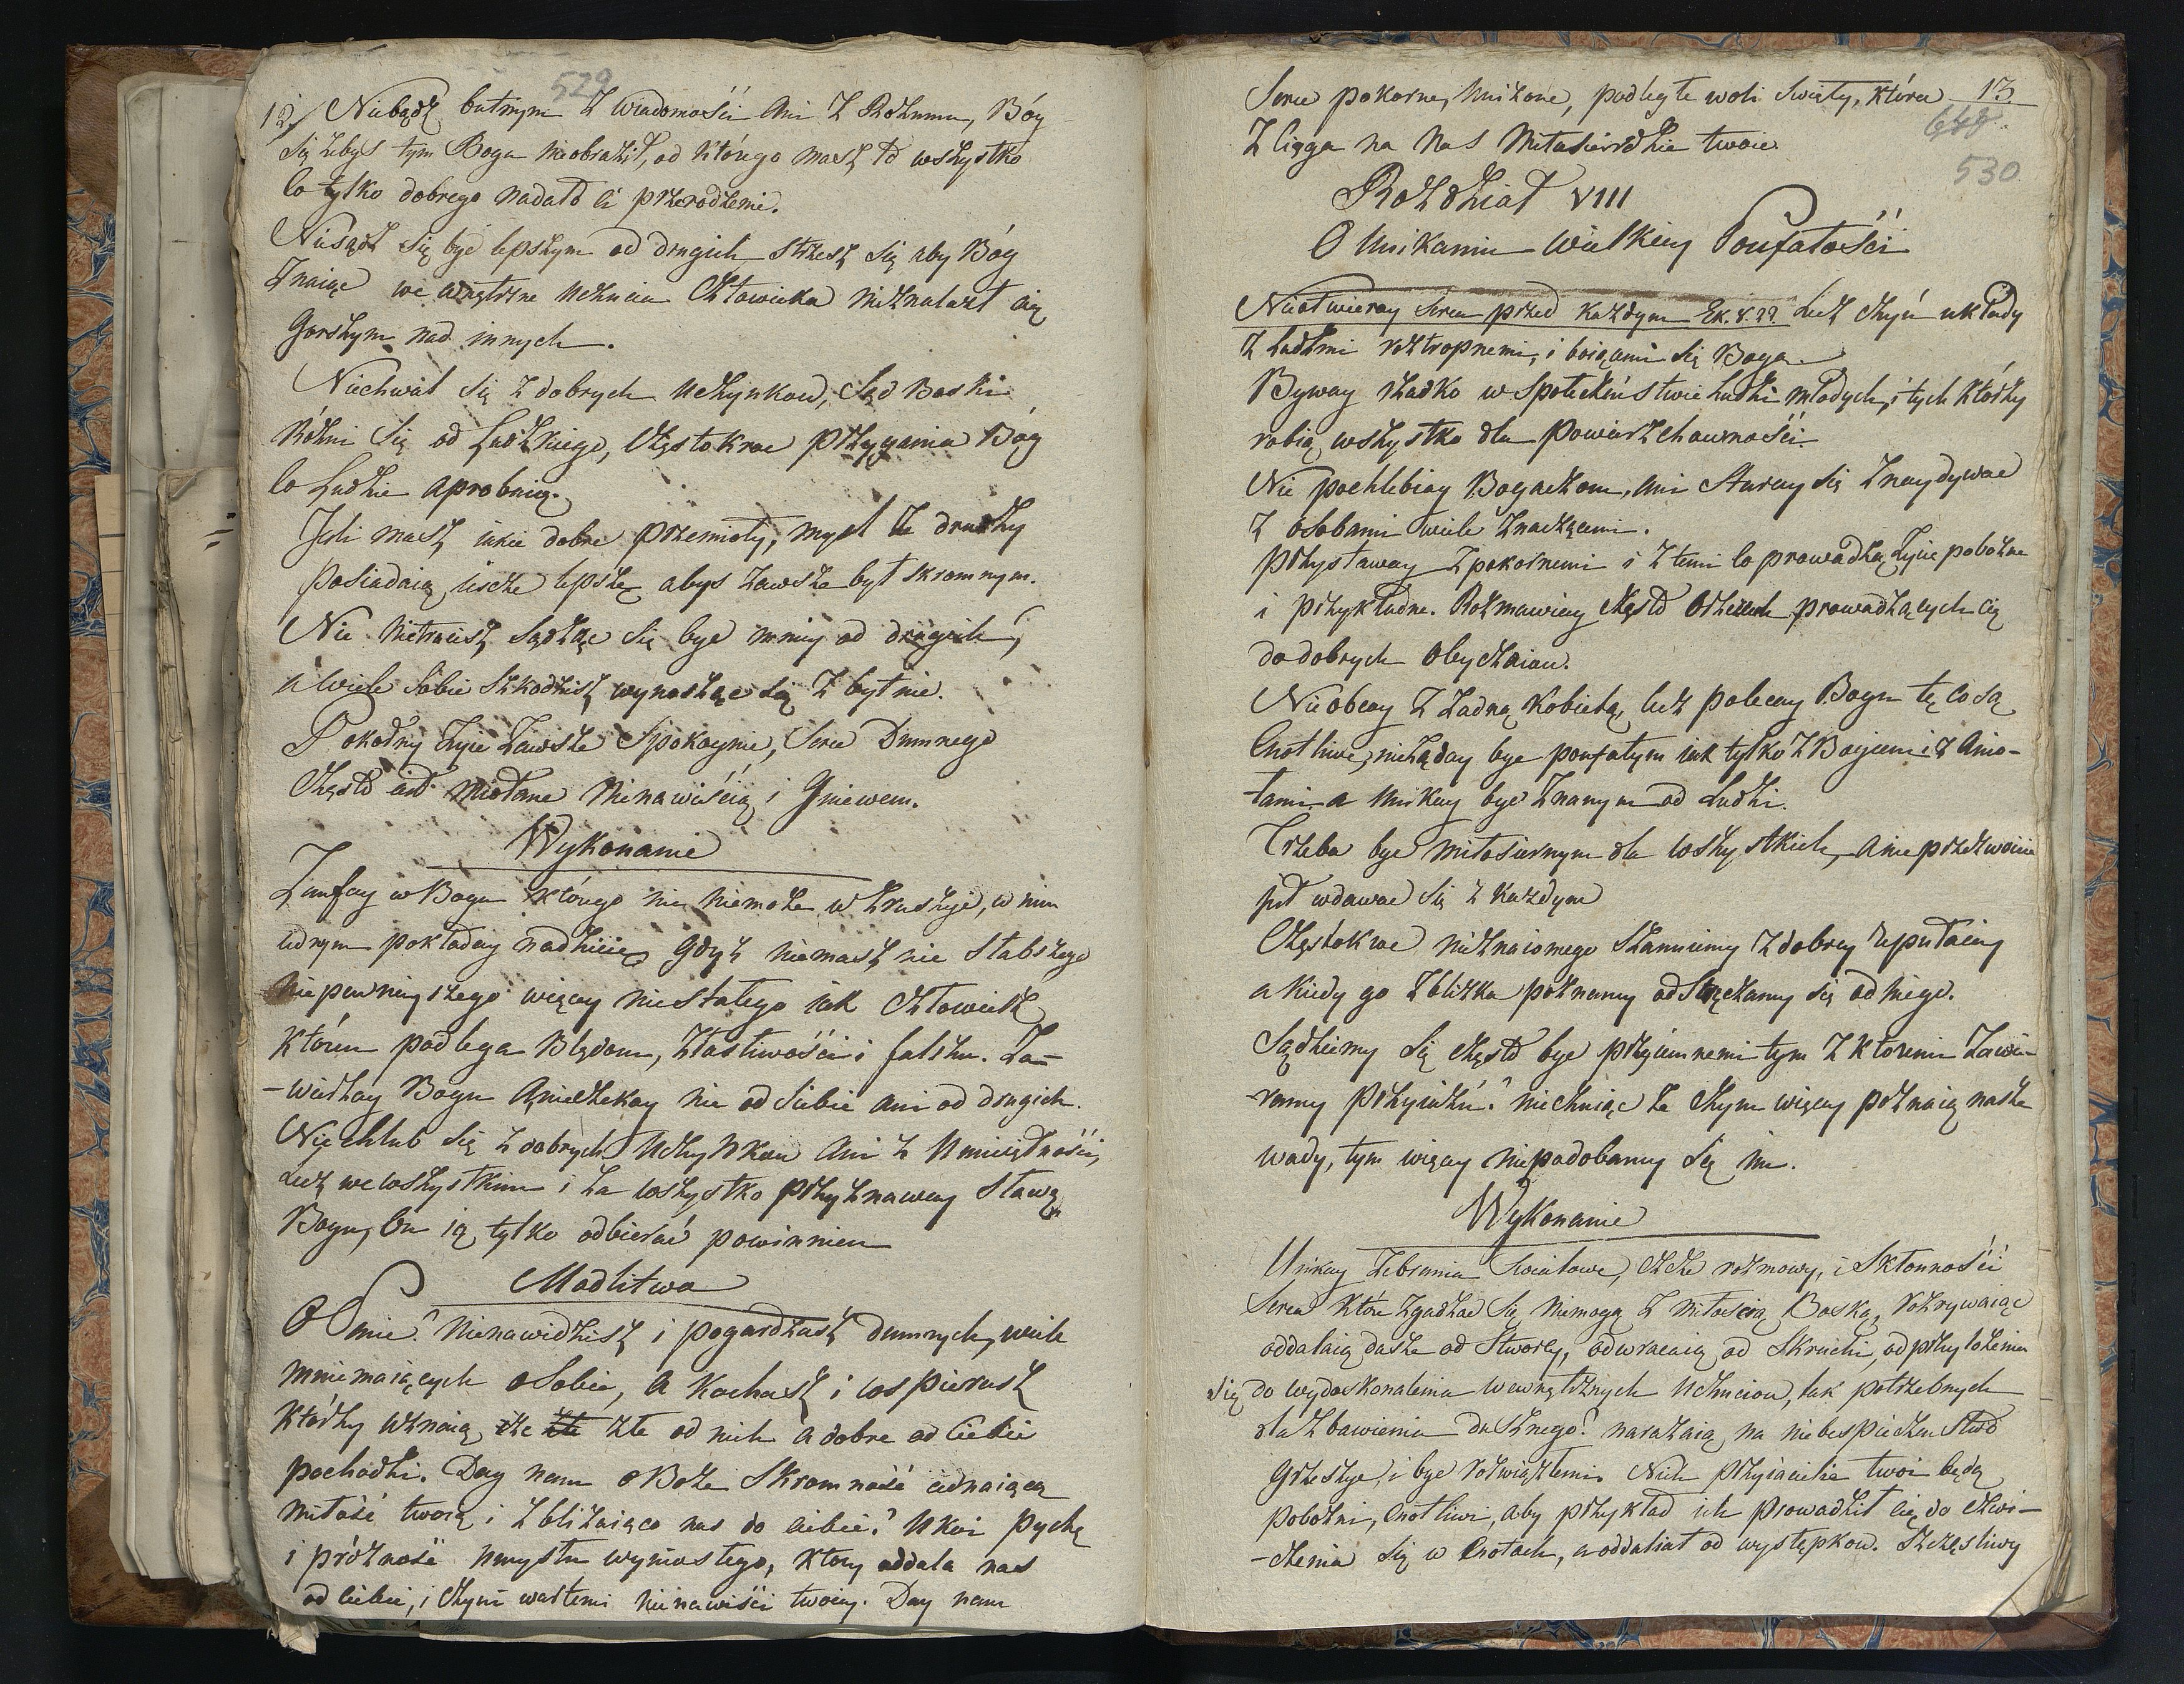 529
12/ Niebądź butnym z wiadomości ani z Rozumu, Bóy
się żebyś tym Boga nieobraził, od którego masz to wszystko
co tylko dobrego nadało ci przerodzenie.
Niesądź się być lepszym od drugich strzesz się aby Bóg
znaiąc we wnętrzne uczucia Człowieka nieznalazł cię
gorszym nad innych.
Niechwal się z dobrych uczynkow, Sąd Boski
różni się od Ludzkiego, Częstokroc przygania Bóg
co Ludzie aprobuią.
Jeśli masz iakie dobre przemioty, mysl że drudzy
posiadaią iescze lepsze abys zawsze był skromnym.
Nic nietracisz sądząc się być mniey od drugich,
a wiele sobie szkodzisz wynosząc się zbytnie.
Pokorny żyie zawsze spokoynie, serce Dumnego
Często iest miotane nienawiścią i Gniewem.
Wykonanie
Zaufay w Bogu którego nic niemoże wzruszyć, w nim
iednym pokładay nadzieię gdyż niemasz nic słabszego
niepewnieyszego więcey niestałego iak Człowiek
któren podlega Błędom, złosliwości i falszu. Za-
-wierzay Bogu a nieczekay nic od siebie ani od drugich.
Niechlub się z dobrych Uczynkow ani z Umieiętności,
Lecz we wszystkim i za wszystko przyznaway sławę
Bogu, On ią tylko odbierać powinnien
Modlitwa
O Panie! Nienawidzisz i pogardzasz dumnych, wiele
mniemaiących o Sobie, a kochasz i wspierasz
którzy uznaią że złe od nich a dobre od Ciebie
pochodzi. Day nam o Boże skromność iednaiącą
miłość twoią i zbliżaiąco nas do ciebie! Ukoi pychę
i próżność umysłu wyniosłego, który oddala nas
od Ciebie, i czyni wartemi nienawiści twoiey. Day nam
Serce pokorne, Uniżone, podległe woli Swięty, która 13
648
z ciąga na Nas Miłosierdzie twoie.
530
Rozdział VIII
O Unikaniu wielkiey Poufałości
Nieotwieray serca przed każdym Ek. 8. 22. Lecz czyń układy
z Ludźmi roztropnemi, i boiącemi się Boga.
Byway rzadko w społeczeństwie Ludzi młodych, i tych którzy
robią wszystko dla powierzchowności.
Nie pochlebiay Bogaczom, ani staray się znaydywac
z osobami wiele znaczącemi.
Przystaway z pokornemi i z temi co prowadzą życie pobożne
i przykładne. Rozmawiay często o rzeczach prowadzących cię
do dobrych obyczaiow.
Nieobcay z żadną kobietą, lecz polecay Bogu tę co są
Cnotliwe, nieżąday być poufałym iak tylko z Bogiem i z Anio-
-łami a Unikay być znanym od Ludzi.
Trzeba być miłosiernym dla wszystkich, a nieprzyzwoicie
jest wdawac się z każdym
Częstokroc nieznaiomego szanuiemy z dobrey reputacyi
a kiedy go z bliska poznamy odstręczamy się od niego.
Sądziemy się często być przyiemnemi tym z któremi zawie-
-ramy przyiaźń! niechcąc że czym więcey poznaią nasze
wady, tym więcey niepodobamy się im.
Wykonanie
Unikay zebrania swiatowe, czcze rozmowy, i skłonności
serca które zgadzac się niemogą z miłością Boską, rozrywaiąc
oddalaią dusze od Stworcy, odwracaią od skruchi, od przyłożenia
się do wydoskonalenia wewnętrznych uczuciow, tak potrzebnych
dla zbawienia dusznego! narażaią na niebespieczeństwo
grzeszyć, i być rozwiązłemi. Niech przyiaciele twoi będą
pobożni, cnotliwi, aby przykład ich prowadził cię do cwi-
-czenia się w Cnotach, a oddaliał od występkow. Szczęsliwy